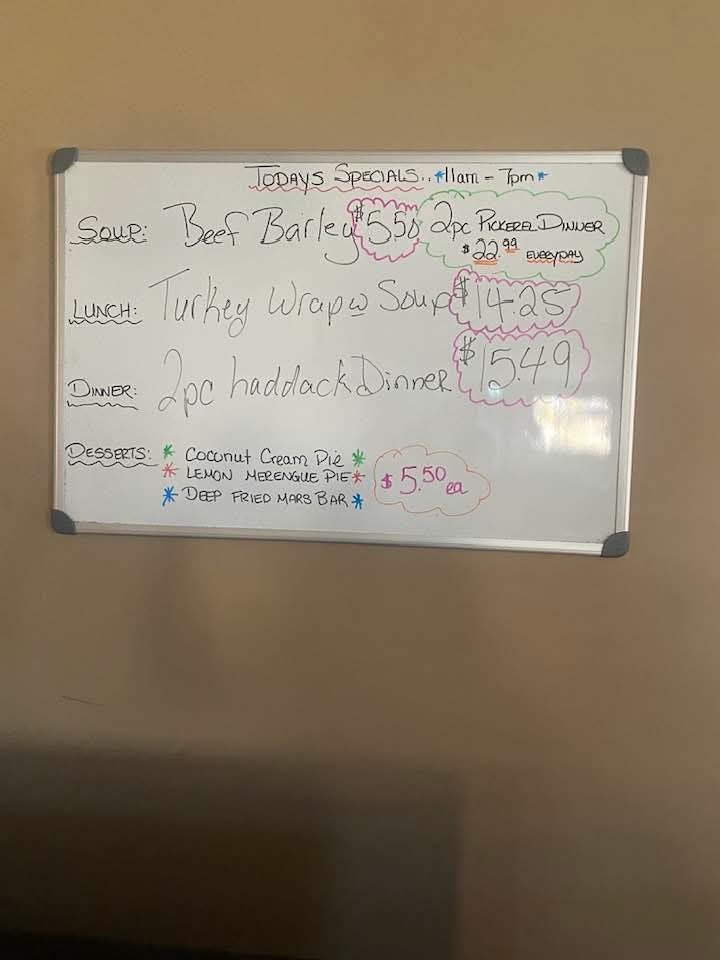 TODAYS SPECIALS.. *11am - 7pm*
SOUP: Beef Barley $5.50
2pc PICKEREL DINNER
$22.99 EVERYDAY
LUNCH: Turkey Wrap w Soup $14.25
DINNER: 2pc haddack Dinner $15.49
DESSERTS: * Coconut Cream Pie *
* LEMON MERENGUE PIE *
* DEEP FRIED MARS BAR *
$5.50 ea